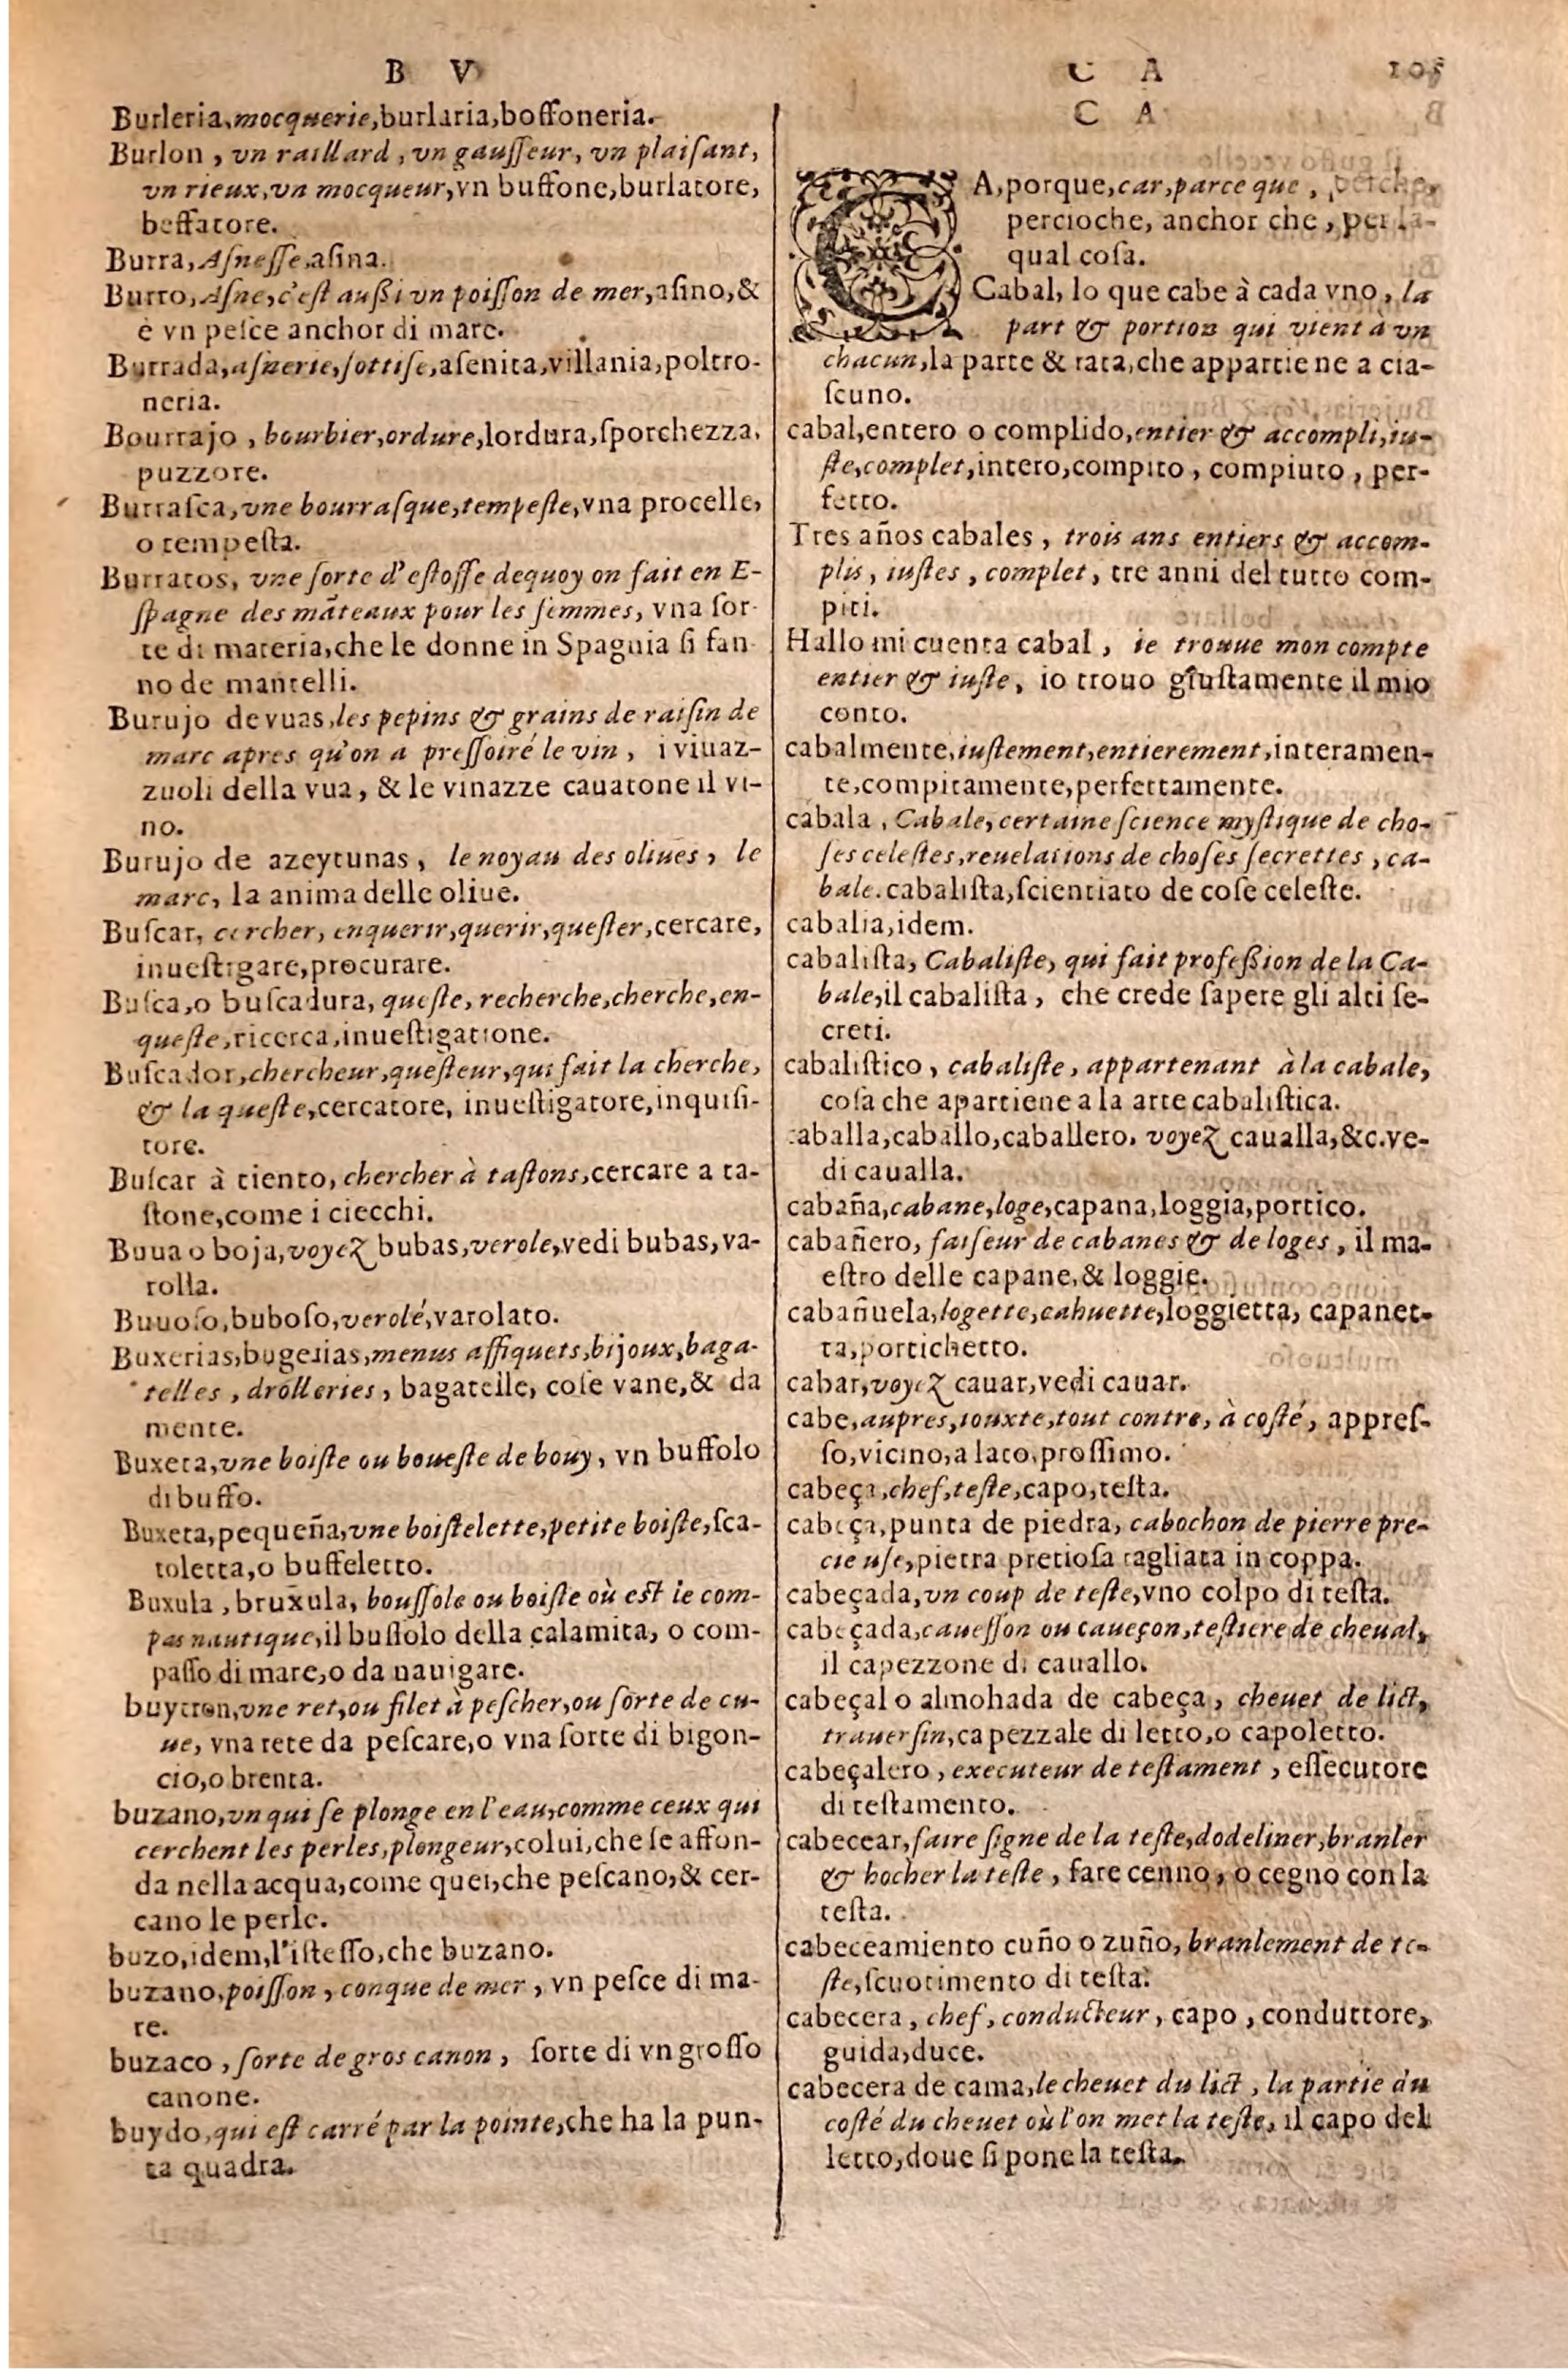 B V
Burleria, mocquerie, burlaria, boffoneria.
Burlon, vn raillard, vn gauſſeur, vn plaiſant,
vn rieux, vn mocqueur, vn buffone, burlatore,
beffatore.
Burra, Aſneſſe, aſina.
Burro, Aſne, c'eſt außi vn poiſſon de mer, aſino, &
è vn peſce anchor di mare.
Burrada, aſnerie, ſottiſe, aſenita, villania, poltro-
neria.
Bourrajo, bourbier, ordure, lordura, ſporchezza,
puzzore.
Burraſca, vne bourraſque, tempeſte, vna procelle,
o tempeſta.
Burratos, vne ſorte d'eſtoffe dequoy on fait en E-
ſpagne des mãteaux pour les femmes, vna ſor-
te di materia, che le donne in Spagnia ſi fan
no de mantelli.
Burujo de vuas, les pepins & grains de raiſin de
marc apres qu'on a preſſoiré le vin, i viuaz-
zuoli della vua, & le vinazze cauatone il vi-
no.
Burujo de azeytunas, le noyau des oliues, le
marc, la anima delle oliue.
Buſcar, cercher, enquerir, querir, queſter, cercare,
inueſtigare, procurare.
Buſca, o buſcadura, queſte, recherche, cherche, en-
queſte, ricerca, inueſtigatione.
Buſcador, chercheur, queſteur, qui fait la cherche,
& la queſte, cercatore, inueſtigatore, inquiſi-
tore.
Buſcar à tiento, chercher à taſtons, cercare a ta-
ſtone, come i ciecchi.
Buua o boja, voyez bubas, verole, vedi bubas, va-
rolla.
Buuoſo, buboſo, verolé, varolato.
Buxerias, bugerias, menus affiquets, bijoux, baga-
telles, drolleries, bagatelle, coſe vane, & da
mente.
Buxeta, vne boiſte ou boueſte de bouy, vn buffolo
di buffo.
Buxeta, pequeña, vne boiſtelette, petite boiſte, ſca-
toletta, o buffeletto.
Buxula, bruxula, bouſſole ou boiſte où eſt le com-
pas nautique, il buſſolo della calamita, o com-
paſſo di mare, o da nauigare.
buytron, vne ret, ou filet à peſcher, ou ſorte de cu-
ue, vna rete da peſcare, o vna ſorte di bigon-
cio, o brenta.
buzano, vn qui ſe plonge en l'eau, comme ceux qui
cerchent les perles, plongeur, colui, che ſe affon-
da nella acqua, come quei, che peſcano, & cer-
cano le perle.
buzo, idem, l'iſteſſo, che buzano.
buzano, poiſſon, conque de mer, vn peſce di ma-
re.
buzaco, ſorte de gros canon, ſorte di vn groſſo
canone.
buydo, qui eſt carré par la pointe, che ha la pun-
ta quadra.
C A 105
C A
CA, porque, car, parce que, perche,
percioche, anchor che, per la-
qual coſa.
Cabal, lo que cabe à cada vno, la
part & portion qui vient à vn
chacun, la parte & rata, che appartiene a cia-
ſcuno.
cabal, entero o complido, entier & accompli, iu-
ſte, complet, intero, compito, compiuto, per-
fetto.
Tres años cabales, trois ans entiers & accom-
plis, iuſtes, complet, tre anni del tutto com-
piti.
Hallo mi cuenta cabal, ie trouue mon compte
entier & iuſte, io trouo giuſtamente il mio
conto.
cabalmente, iuſtement, entierement, interamen-
te, compitamente, perfettamente.
cabala, Cabale, certaine ſcience myſtique de cho-
ſes celeſtes, reuelations de choſes ſecrettes, ca-
bale. cabaliſta, ſcientiato de coſe celeſte.
cabalia, idem.
cabaliſta, Cabaliſte, qui fait profeßion de la Ca-
bale, il cabaliſta, che crede ſapere gli alti ſe-
creti.
cabaliſtico, cabaliſte, appartenant à la cabale,
coſa che apartiene a la arte cabaliſtica.
caballa, caballo, caballero, voyez caualla, &c. ve-
di caualla.
cabaña, cabane, loge, capana, loggia, portico.
cabañero, faiſeur de cabanes & de loges, il ma-
eſtro delle capane, & loggie.
cabañuela, logette, cahuette, loggietta, capanet-
ta, portichetto.
cabar, voyez cauar, vedi cauar.
cabe, aupres, iouxte, tout contre, à coſté, appreſ-
ſo, vicino, a lato, proſſimo.
cabeça, chef, teſte, capo, teſta.
cabeça, punta de piedra, cabochon de pierre pre-
cieuſe, pietra pretioſa tagliata in coppa.
cabeçada, vn coup de teſte, vno colpo di teſta.
cabeçada, caueſſon ou caueçon, teſtiere de cheual,
il capezzone di cauallo.
cabeçal o almohada de cabeça, cheuet de lict,
trauerſin, capezzale di letto, o capoletto.
cabeçalero, executeur de teſtament, eſſecutore
di teſtamento.
cabecear, faire ſigne de la teſte, dodeliner, branler
& hocher la teſte, fare cenno, o cegno con la
teſta.
cabeceamiento cuño o zuño, branlement de te-
ſte, ſcuotimento di teſta.
cabecera, chef, conducteur, capo, conduttore,
guida, duce.
cabecera de cama, le cheuet du lict, la partie du
coſté du cheuet où l'on met la teſte, il capo del
letto, doue ſi pone la teſta.